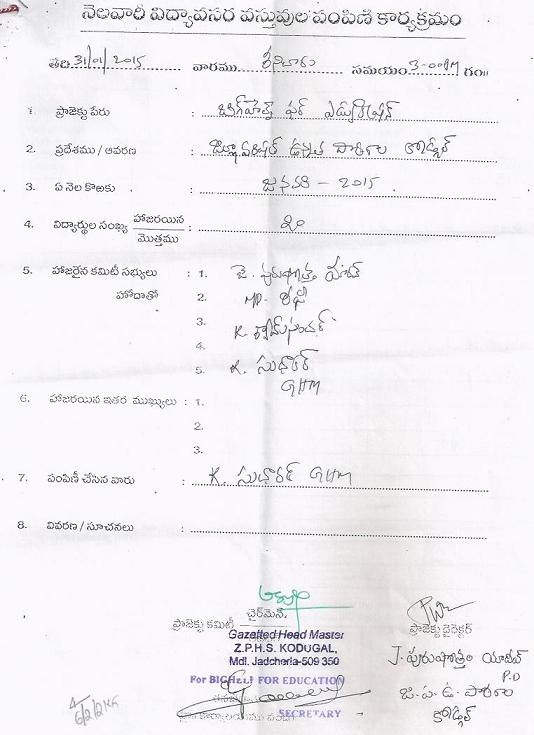 నెలవారి విద్యావసర వస్తువుల పంపిణి కార్యక్రమం
తేది 31/01/2015 వారము శనివారం సమయం 3-00PM గం॥
1. ప్రాజెక్టు పేరు : బిగ్‌హెల్ప్ ఫర్ ఎడ్యుకేషన్
2. ప్రదేశము / ఆవరణ : ఉన్నత పాఠశాల కోడ్గల్
3. ఏ నెల కొఱకు : జనవరి - 2015
4. విద్యార్థుల సంఖ్య హాజరయిన / మొత్తము : 20
5. హాజరైన కమిటీ సభ్యులు : 1. జె. పురుషోత్తం యాదవ్
హోదాతో 2. MD. రఫీ
3. K. శ్యామ్‌సుందర్
4.
5. K. సుధాకర్
GHM
6. హాజరయిన ఇతర ముఖ్యులు : 1.
2.
3.
7. పంపిణీ చేసిన వారు : K. సుధాకర్ GHM
8. వివరణ / సూచనలు :
ప్రాజెక్టు కమిటీ చైర్‌మెన్
ప్రాజెక్టు డైరెక్టర్
Gazetted Head Master
Z.P.H.S. KODUGAL,
Mdl. Jadcherla-509 350
J. పురుషోత్తం యాదవ్
P.D
For BIGHELP FOR EDUCATION
జి.ప.ఉ. పాఠశాల
కోడ్గల్
SECRETARY